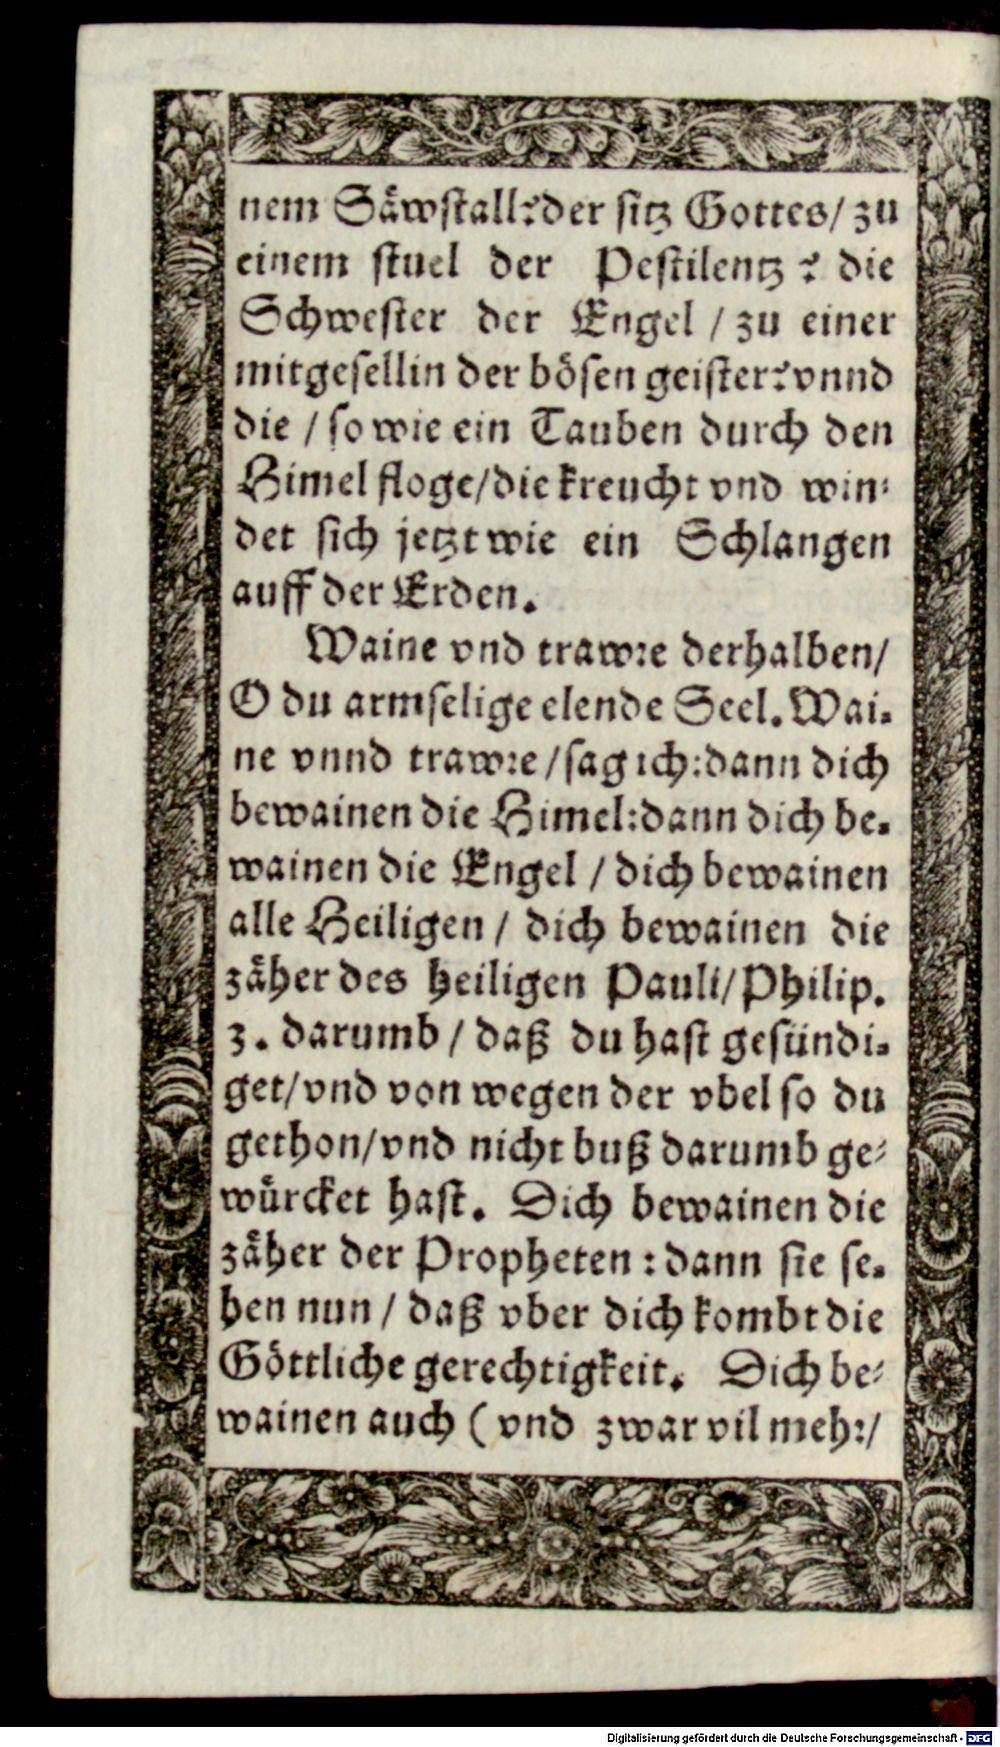 nem Säwstall? der sitz Gottes / zu
einem stuel der Pestilentz? die
Schwester der Engel / zu einer
mitgesellin der bösen geister? vnnd
die / so wie ein Tauben durch den
Himel floge / die kreucht vnd win-
det sich jetzt wie ein Schlangen
auff der Erden.
Waine vnd trawre derhalben /
O du armselige elende Seel. Wai-
ne vnnd trawre / sag ich: dann dich
bewainen die Himel: dann dich be-
wainen die Engel / dich bewainen
alle Heiligen / dich bewainen die
zäher des heiligen Pauli / Philip.
3. darumb / daß du hast gesündi-
get / vnd von wegen der vbel so du
gethon / vnd nicht buß darumb ge-
würcket hast. Dich bewainen die
zäher der Propheten: dann sie se-
hen nun / daß vber dich kombt die
Göttliche gerechtigkeit. Dich be-
wainen auch ( vnd zwar vil mehr /
Digitalisierung gefördert durch die Deutsche Forschungsgemeinschaft - DFG